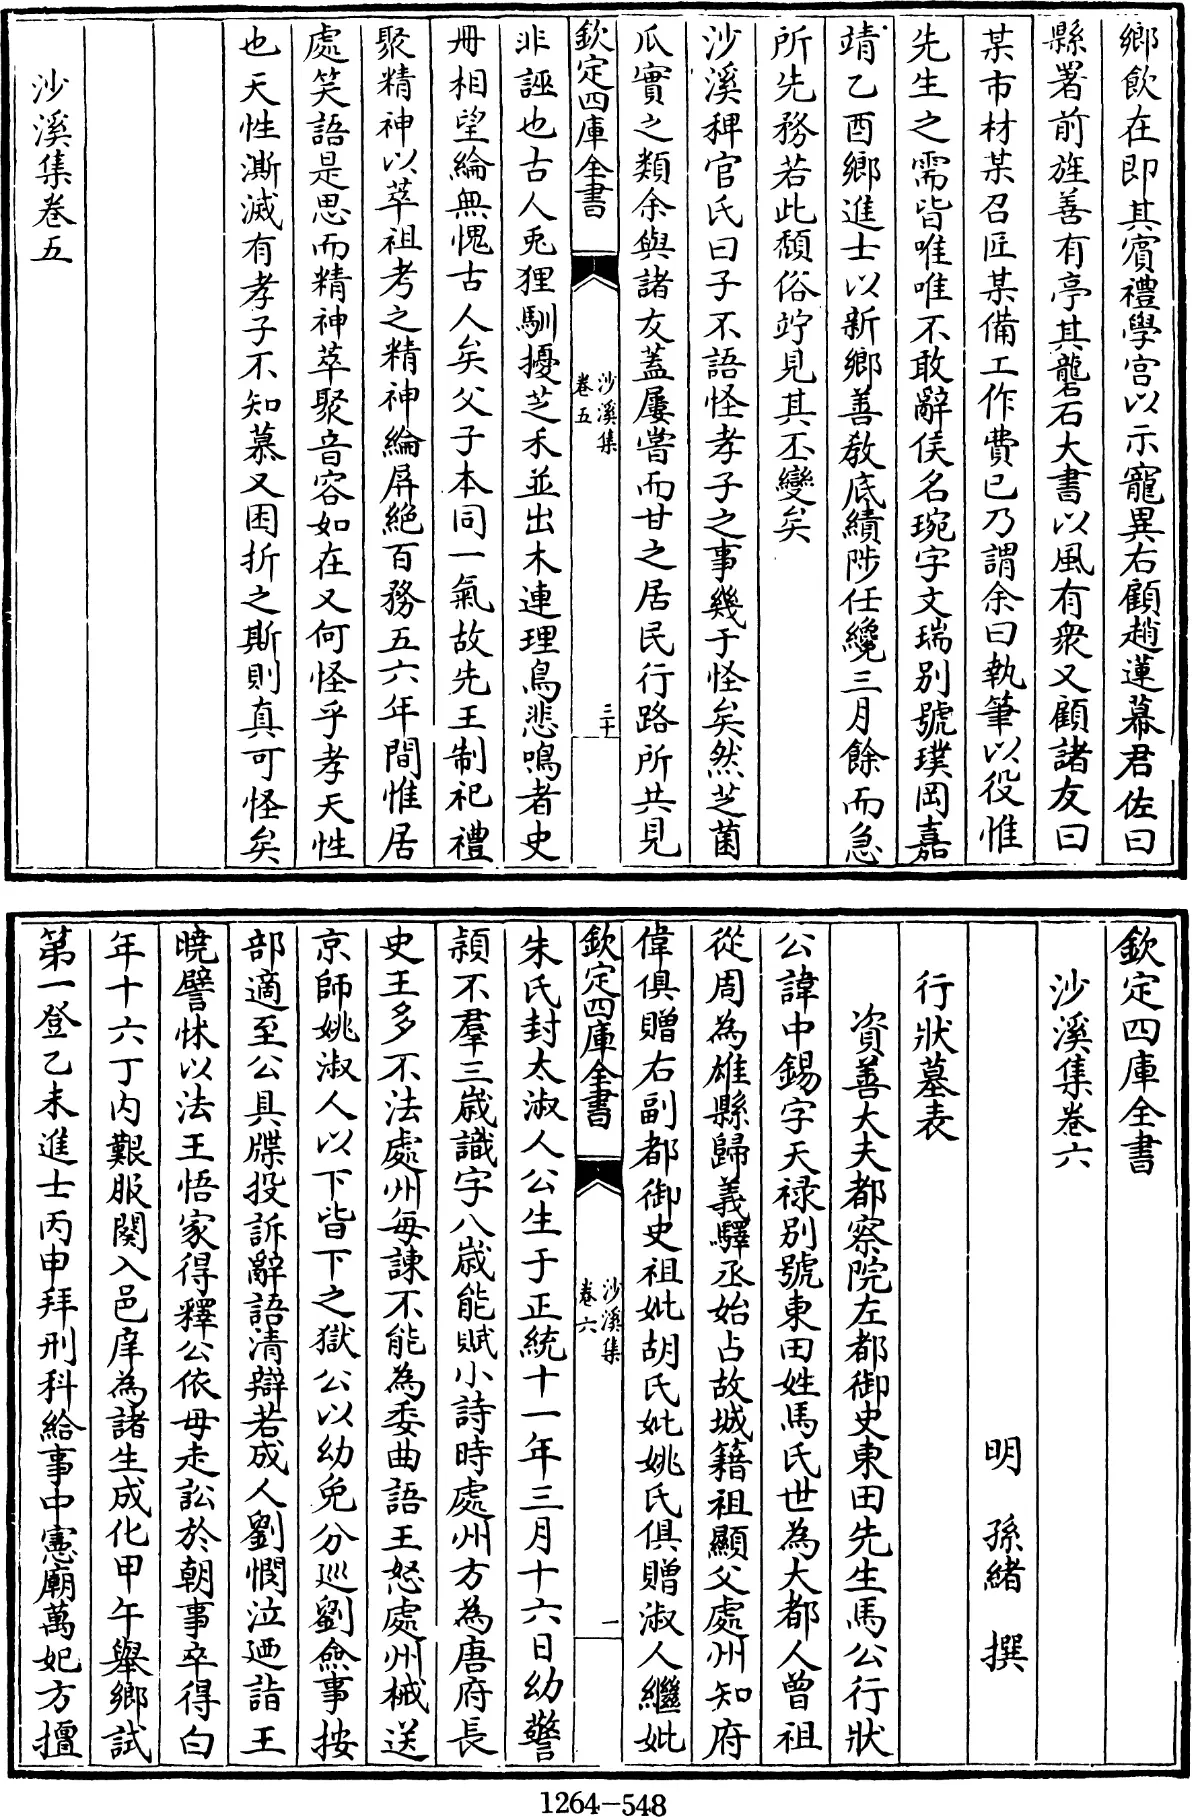 鄉飲在即其賓禮學宮以示寵異右顧趙蓮幕君佐曰
縣署前旌善有亭其礲石大書以風有衆又顧諸友曰
某市材某召匠某備工作費已乃謂余曰執筆以役惟
先生之需皆唯唯不敢辭侯名琬字文瑞別號璞岡嘉
靖乙酉鄉進士以新鄉善教底績陟任纔三月餘而急
所先務若此頹俗竚見其丕變矣
沙溪稗官氏曰子不語怪孝子之事幾于怪矣然芝菌
瓜實之類余與諸友蓋屢嘗而甘之居民行路所共見
欽定四庫全書
沙溪集
卷五
三十
非誣也古人兎狸馴擾芝禾並出木連理鳥悲鳴者史
冊相望綸無愧古人矣父子本同一氣故先王制祀禮
聚精神以萃祖考之精神綸屏絶百務五六年間惟居
處笑語是思而精神萃聚音容如在又何怪乎孝天性
也天性澌滅有孝子不知慕又困折之斯則真可怪矣
沙溪集卷五
欽定四庫全書
沙溪集卷六
明 孫緒 撰
行狀墓表
資善大夫都察院左都御史東田先生馬公行狀
公諱中錫字天祿別號東田姓馬氏世為大都人曾祖
從周為雄縣歸義驛丞始占故城籍祖顯父處州知府
偉俱贈右副都御史祖妣胡氏妣姚氏俱贈淑人繼妣
欽定四庫全書
沙溪集
卷六
一
朱氏封太淑人公生于正統十一年三月十六日幼警
頴不羣三歲識字八歲能賦小詩時處州方為唐府長
史王多不法處州每諫不能為委曲語王怒處州械送
京師姚淑人以下皆下之獄公以幼免分巡劉僉事按
部適至公具牒投訴辭語清辯若成人劉憫泣廼詣王
曉譬怵以法王悟家得釋公依母走訟於朝事卒得白
年十六丁內艱服闋入邑庠為諸生成化甲午舉鄉試
第一登乙未進士丙申拜刑科給事中憲廟萬妃方擅
1264—548